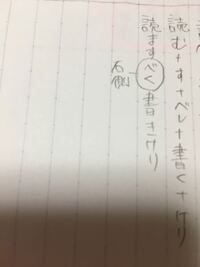 読む+す+べし+書く+けり
読ますべく書きけり
右側